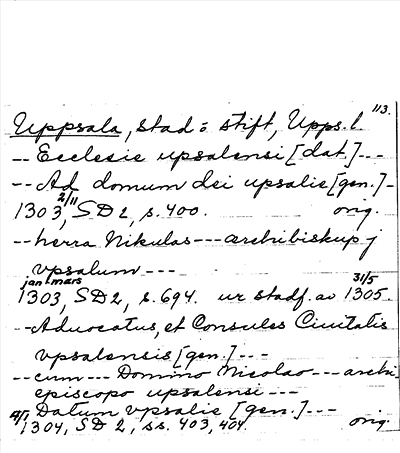 113.
Uppsala, stad o. stift, Upps. l.
-- Ecclesie upsalensi [dat.] ---
-- Ad domum dei upsalie [gen.] -
1303 2/11, SD 2, s. 400. orig.
-- herra Nikulas --- ærchibiskup j
vpsalum ---
1303 jan-mars, SD 2, s. 694. ur stadf. av 31/5 1305.
-- Aduocatus, et Consules Ciuitatis
vpsalensis [gen.] ---
-- cum --- Domino Nicolao --- archi
episcopo upsalensi ---
-- Datum vpsalie [gen.] ---
1304, SD 2, ss. 403, 404. orig.